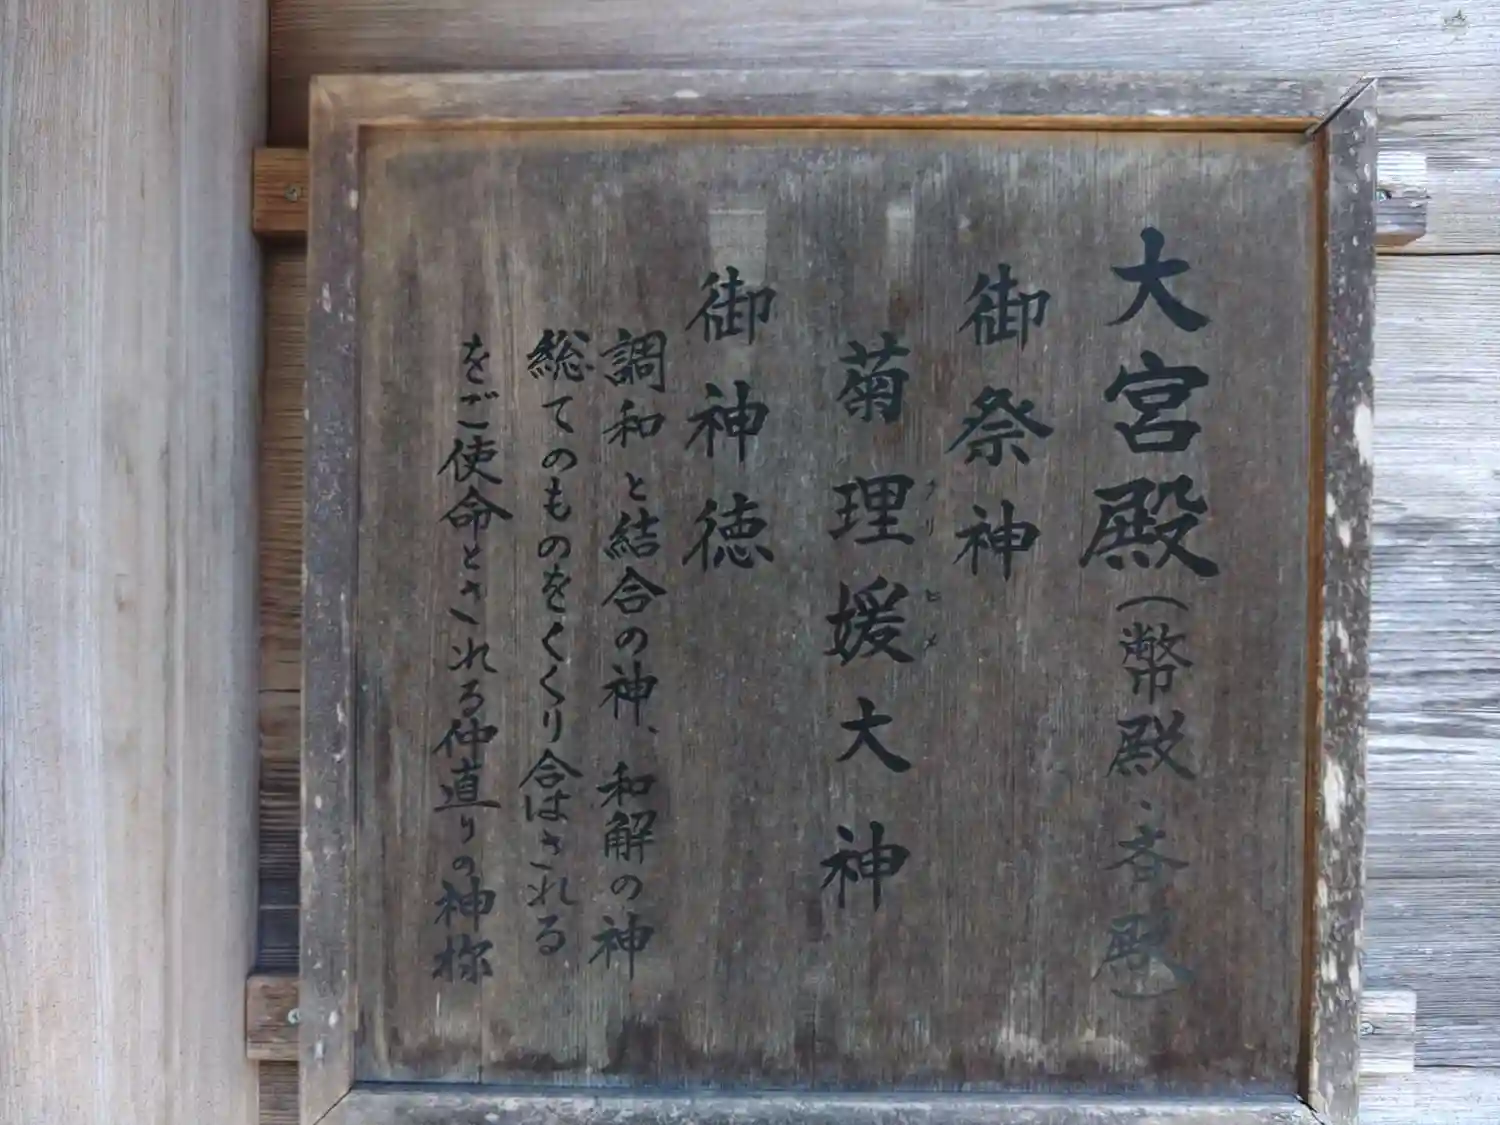 大宮殿（幣殿、斉殿）
御祭神
菊理媛大神
クリヒメ
御神徳
調和と結合の神、和解の神
総てのものをくくり合はされる
をご使命とされる仲直りの神様